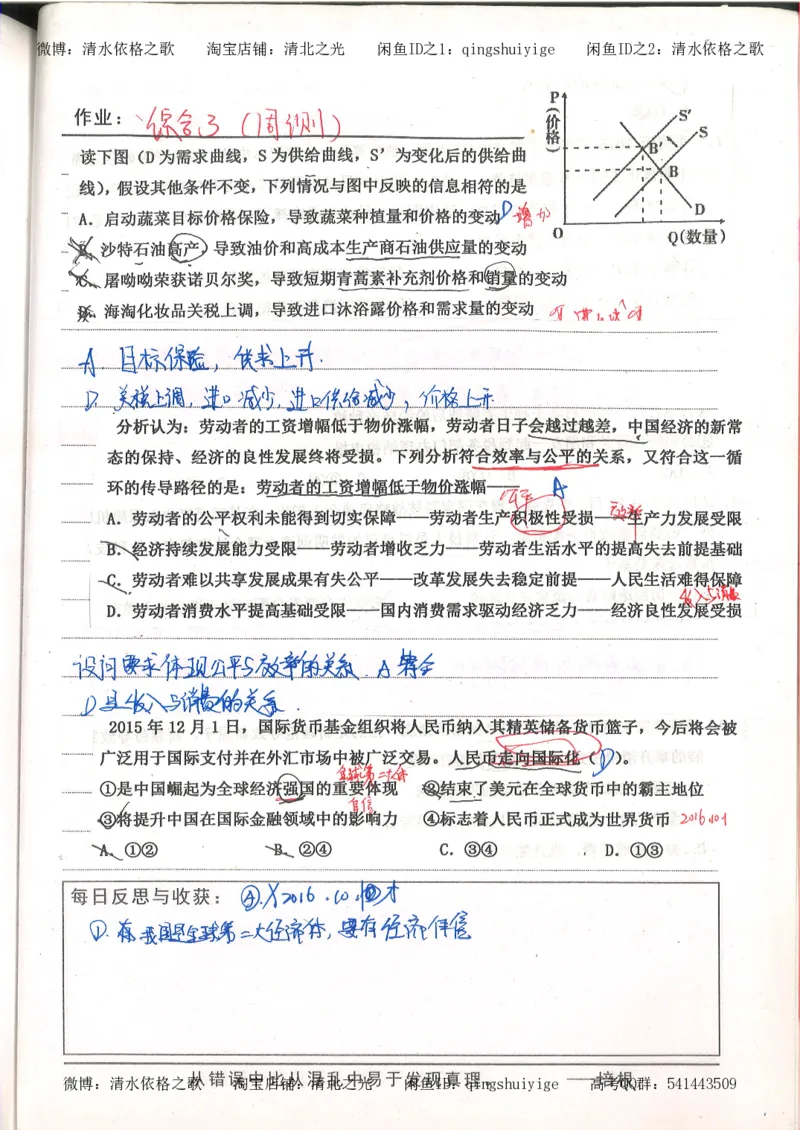 微博：清水依格之歌 淘宝店铺：清北之光 闲鱼ID之1：qingshuiyige 闲鱼ID之2：清水依格之歌
作业： 综合3（周测）
读下图（D为需求曲线，S为供给曲线，S′为变化后的供给曲
线），假设其他条件不变，下列情况与图中反映的信息相符的是 D
A. 启动蔬菜目标价格保险，导致蔬菜种植量和价格的变动 增加
B. 沙特石油高产，导致油价和高成本生产商石油供应量的变动
C. 屠呦呦荣获诺贝尔奖，导致短期青蒿素补充剂价格和销量的变动
D. 海淘化妆品关税上调，导致进口沐浴露价格和需求量的变动
P(价格)
S′
S
B′
B
D
O
Q(数量)
A. 目标保险，供求上升.
D. 关税上调，进口减少，进口供给减少，价格上升
分析认为：劳动者的工资增幅低于物价涨幅，劳动者日子会越过越差，中国经济的新常
态的保持、经济的良性发展终将受损。下列分析符合效率与公平的关系，又符合这一循
环的传导路径的是：劳动者的工资增幅低于物价涨幅—— A
A. 劳动者的公平权利未能得到切实保障——劳动者生产积极性受损——生产力发展受限
效率
B. 经济持续发展能力受限——劳动者增收乏力——劳动者生活水平的提高失去前提基础
C. 劳动者难以共享发展成果有失公平——改革发展失去稳定前提——人民生活难得保障
收入与消费
D. 劳动者消费水平提高基础受限——国内消费需求驱动经济乏力——经济良性发展受损
设问要求体现公平与效率的关系. A符合
D是收入与消费的关系.
2015年12月1日，国际货币基金组织将人民币纳入其精英储备货币篮子，今后将会被
广泛用于国际支付并在外汇市场中被广泛交易。人民币走向国际化（ D ）。
全球第二大体
①是中国崛起为全球经济强国的重要体现 ②结束了美元在全球货币中的霸主地位
③将提升中国在国际金融领域中的影响力 ④标志着人民币正式成为世界货币 2016.10.1
A. ①② B. ②④ C. ③④ D. ①③
每日反思与收获： ④.X 2016.10.1日才
①. 有我国是全球第二大经济体，要有经济自信
从错误中比从混乱中易于发现真理。 ——培根
微博：清水依格之歌 淘宝店铺：清北之光 闲鱼ID：qingshuiyige 高考QQ群：541443509